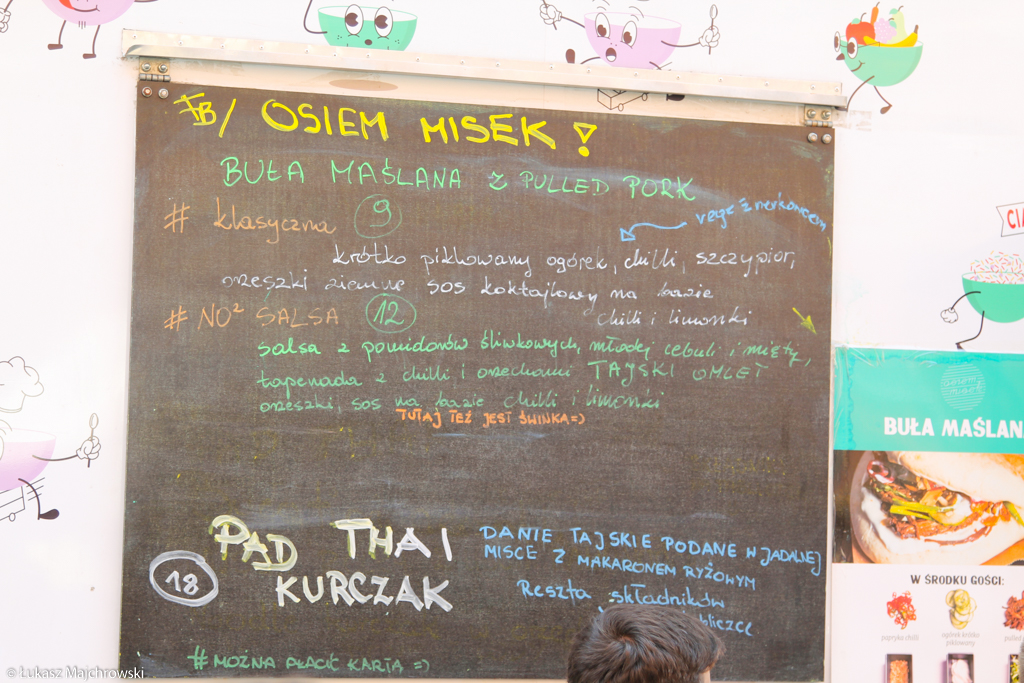 FB/ OSIEM MISEK!
BUŁA MAŚLANA Z PULLED PORK
# klasyczna 9
vege z nerkowcem
krótko piklowany ogórek, chilli, szczypior,
orzeszki ziemne sos koktajlowy na bazie
chilli i limonki
# NO² SALSA 12
salsa z pomidorów śliwkowych, młodej cebuli i mięty,
tapenada z chilli i orzechami TAJSKI OMLET
orzeszki, sos na bazie chilli i limonki
TUTAJ TEŻ JEST ŚWINKA =)
PAD THAI
KURCZAK
18
DANIE TAJSKIE PODANE W JADALNEJ
MISCE Z MAKARONEM RYŻOWYM
Reszta składników
# MOŻNA PŁACIĆ KARTĄ =)
BUŁA MAŚLAN
W ŚRODKU GOŚCI:
papryka chilli
ogórek krótko
piklowany
pulled
© Łukasz Majchrowski